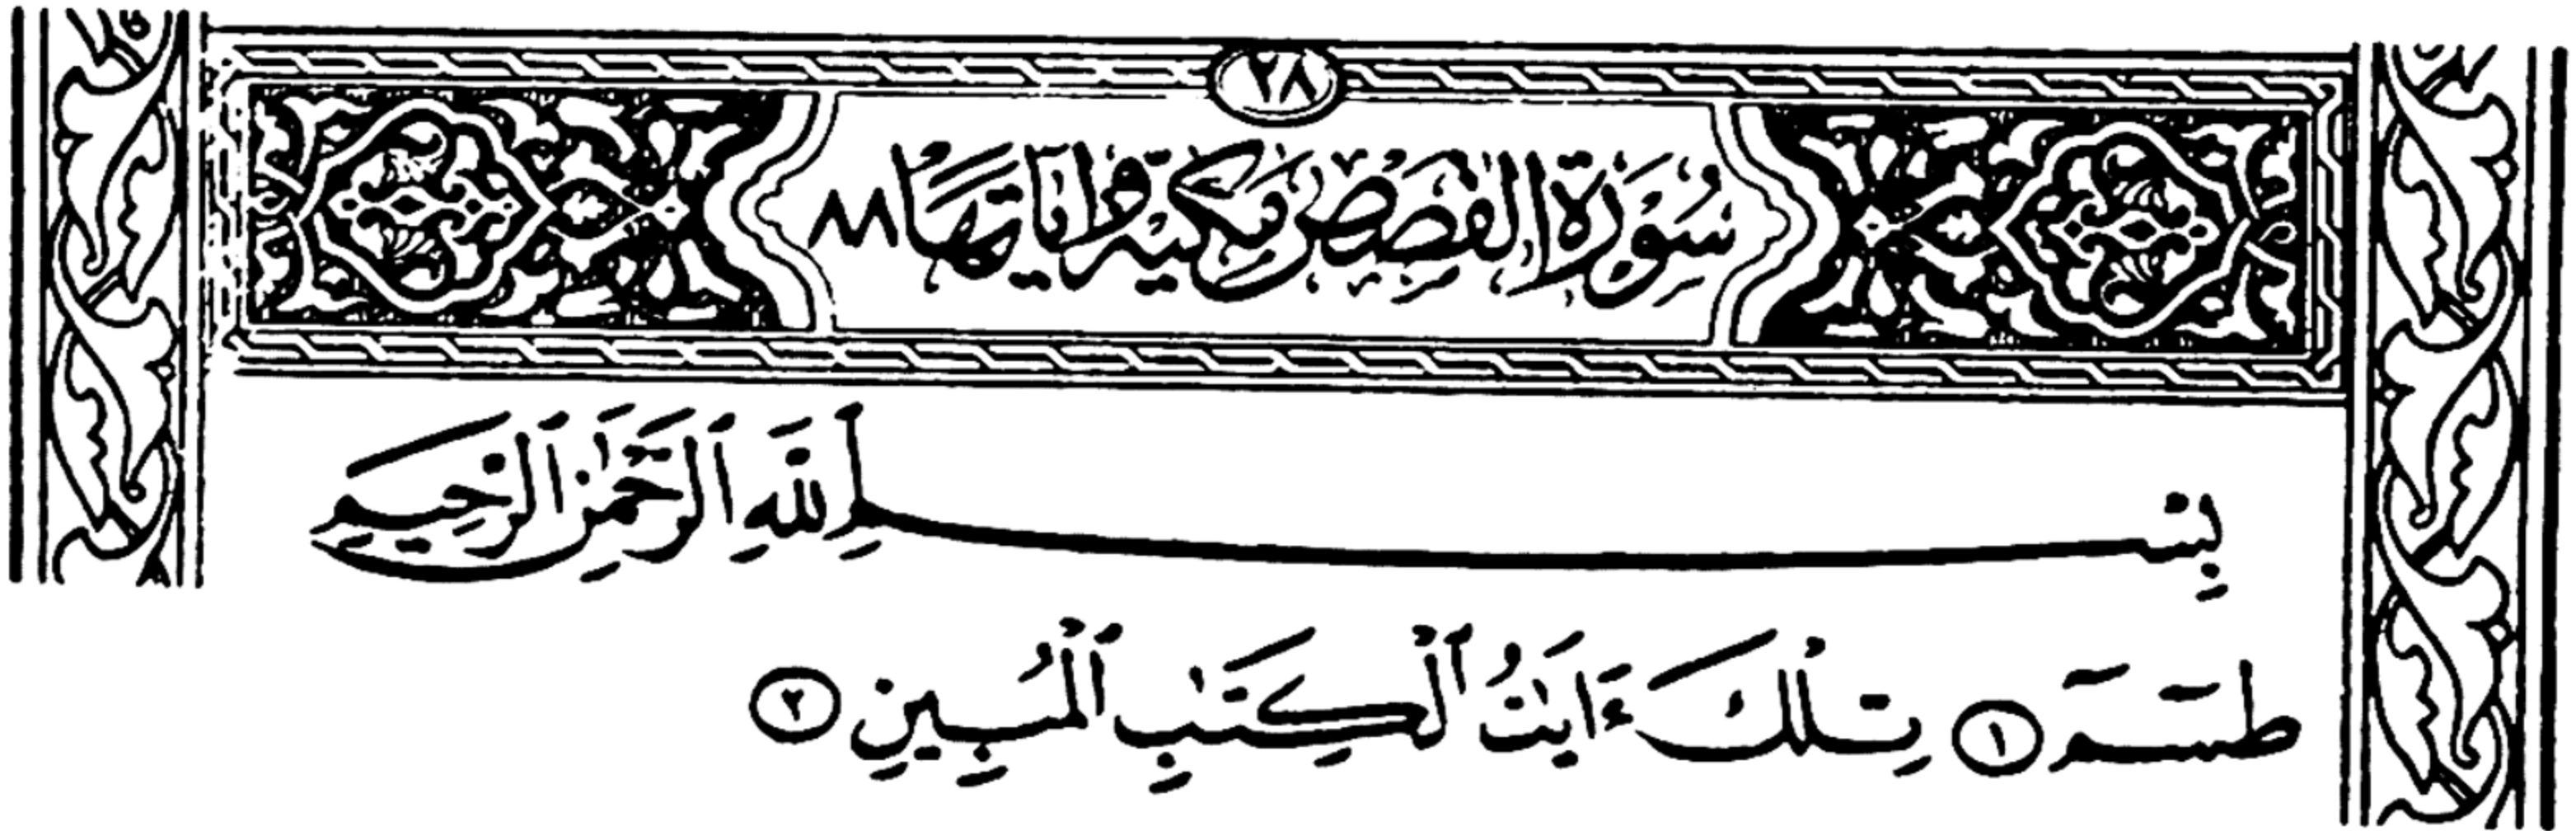 ٢٨
سُورَةُ الْقَصَصِ مَكِّيَّةٌ وَآيَاتُهَا ٨٨
بِسْمِ ٱللَّهِ ٱلرَّحْمَٰنِ ٱلرَّحِيمِ
طسٓمٓ ١ تِلْكَ ءَايَٰتُ ٱلْكِتَٰبِ ٱلْمُبِينِ ٢